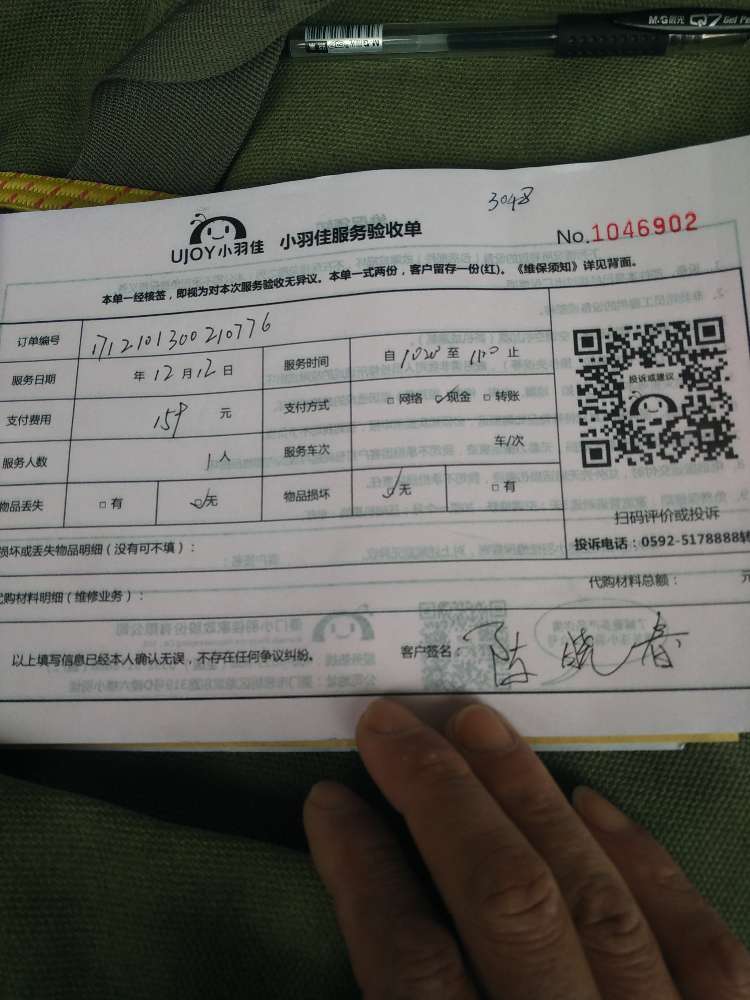 M&G晨光 Q7 Gel Pe
M&G
3048
UJOY小羽佳 小羽佳服务验收单 No.1046902
本单一经核签，即视为对本次服务验收无异议。本单一式两份，客户留存一份(红)。《维保须知》详见背面。
订单编号 1712101300210776
服务日期 年12月12日 服务时间 自1020至1110止
支付费用 159元 支付方式 □网络 ☑现金 □转账
服务人数 1人 服务车次 车/次
物品丢失 □有 ☑无 物品损坏 ☑无 □有
投诉或建议
扫码评价或投诉
投诉电话：0592-5178888转
损坏或丢失物品明细（没有可不填）：
代购材料明细（维修业务）： 代购材料总额： 元
以上填写信息已经本人确认无误，不存在任何争议纠纷。 客户签名：陈晓春